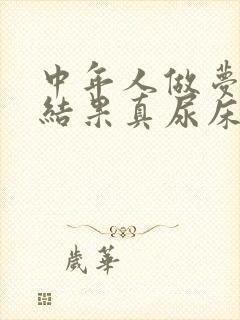 中年人做夢
結果真尿床
歲華